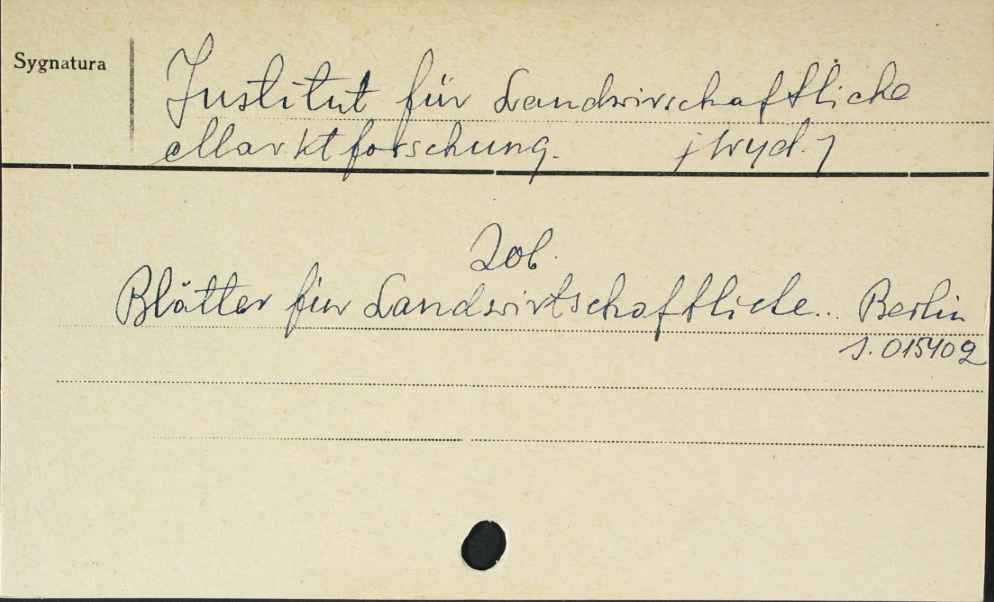 Sygnatura
Institut für Landwirschaftliche
Marktforschung. /wyd./
Zob.
Blätter für Landwirtschaftliche.. Berlin
S. 015402